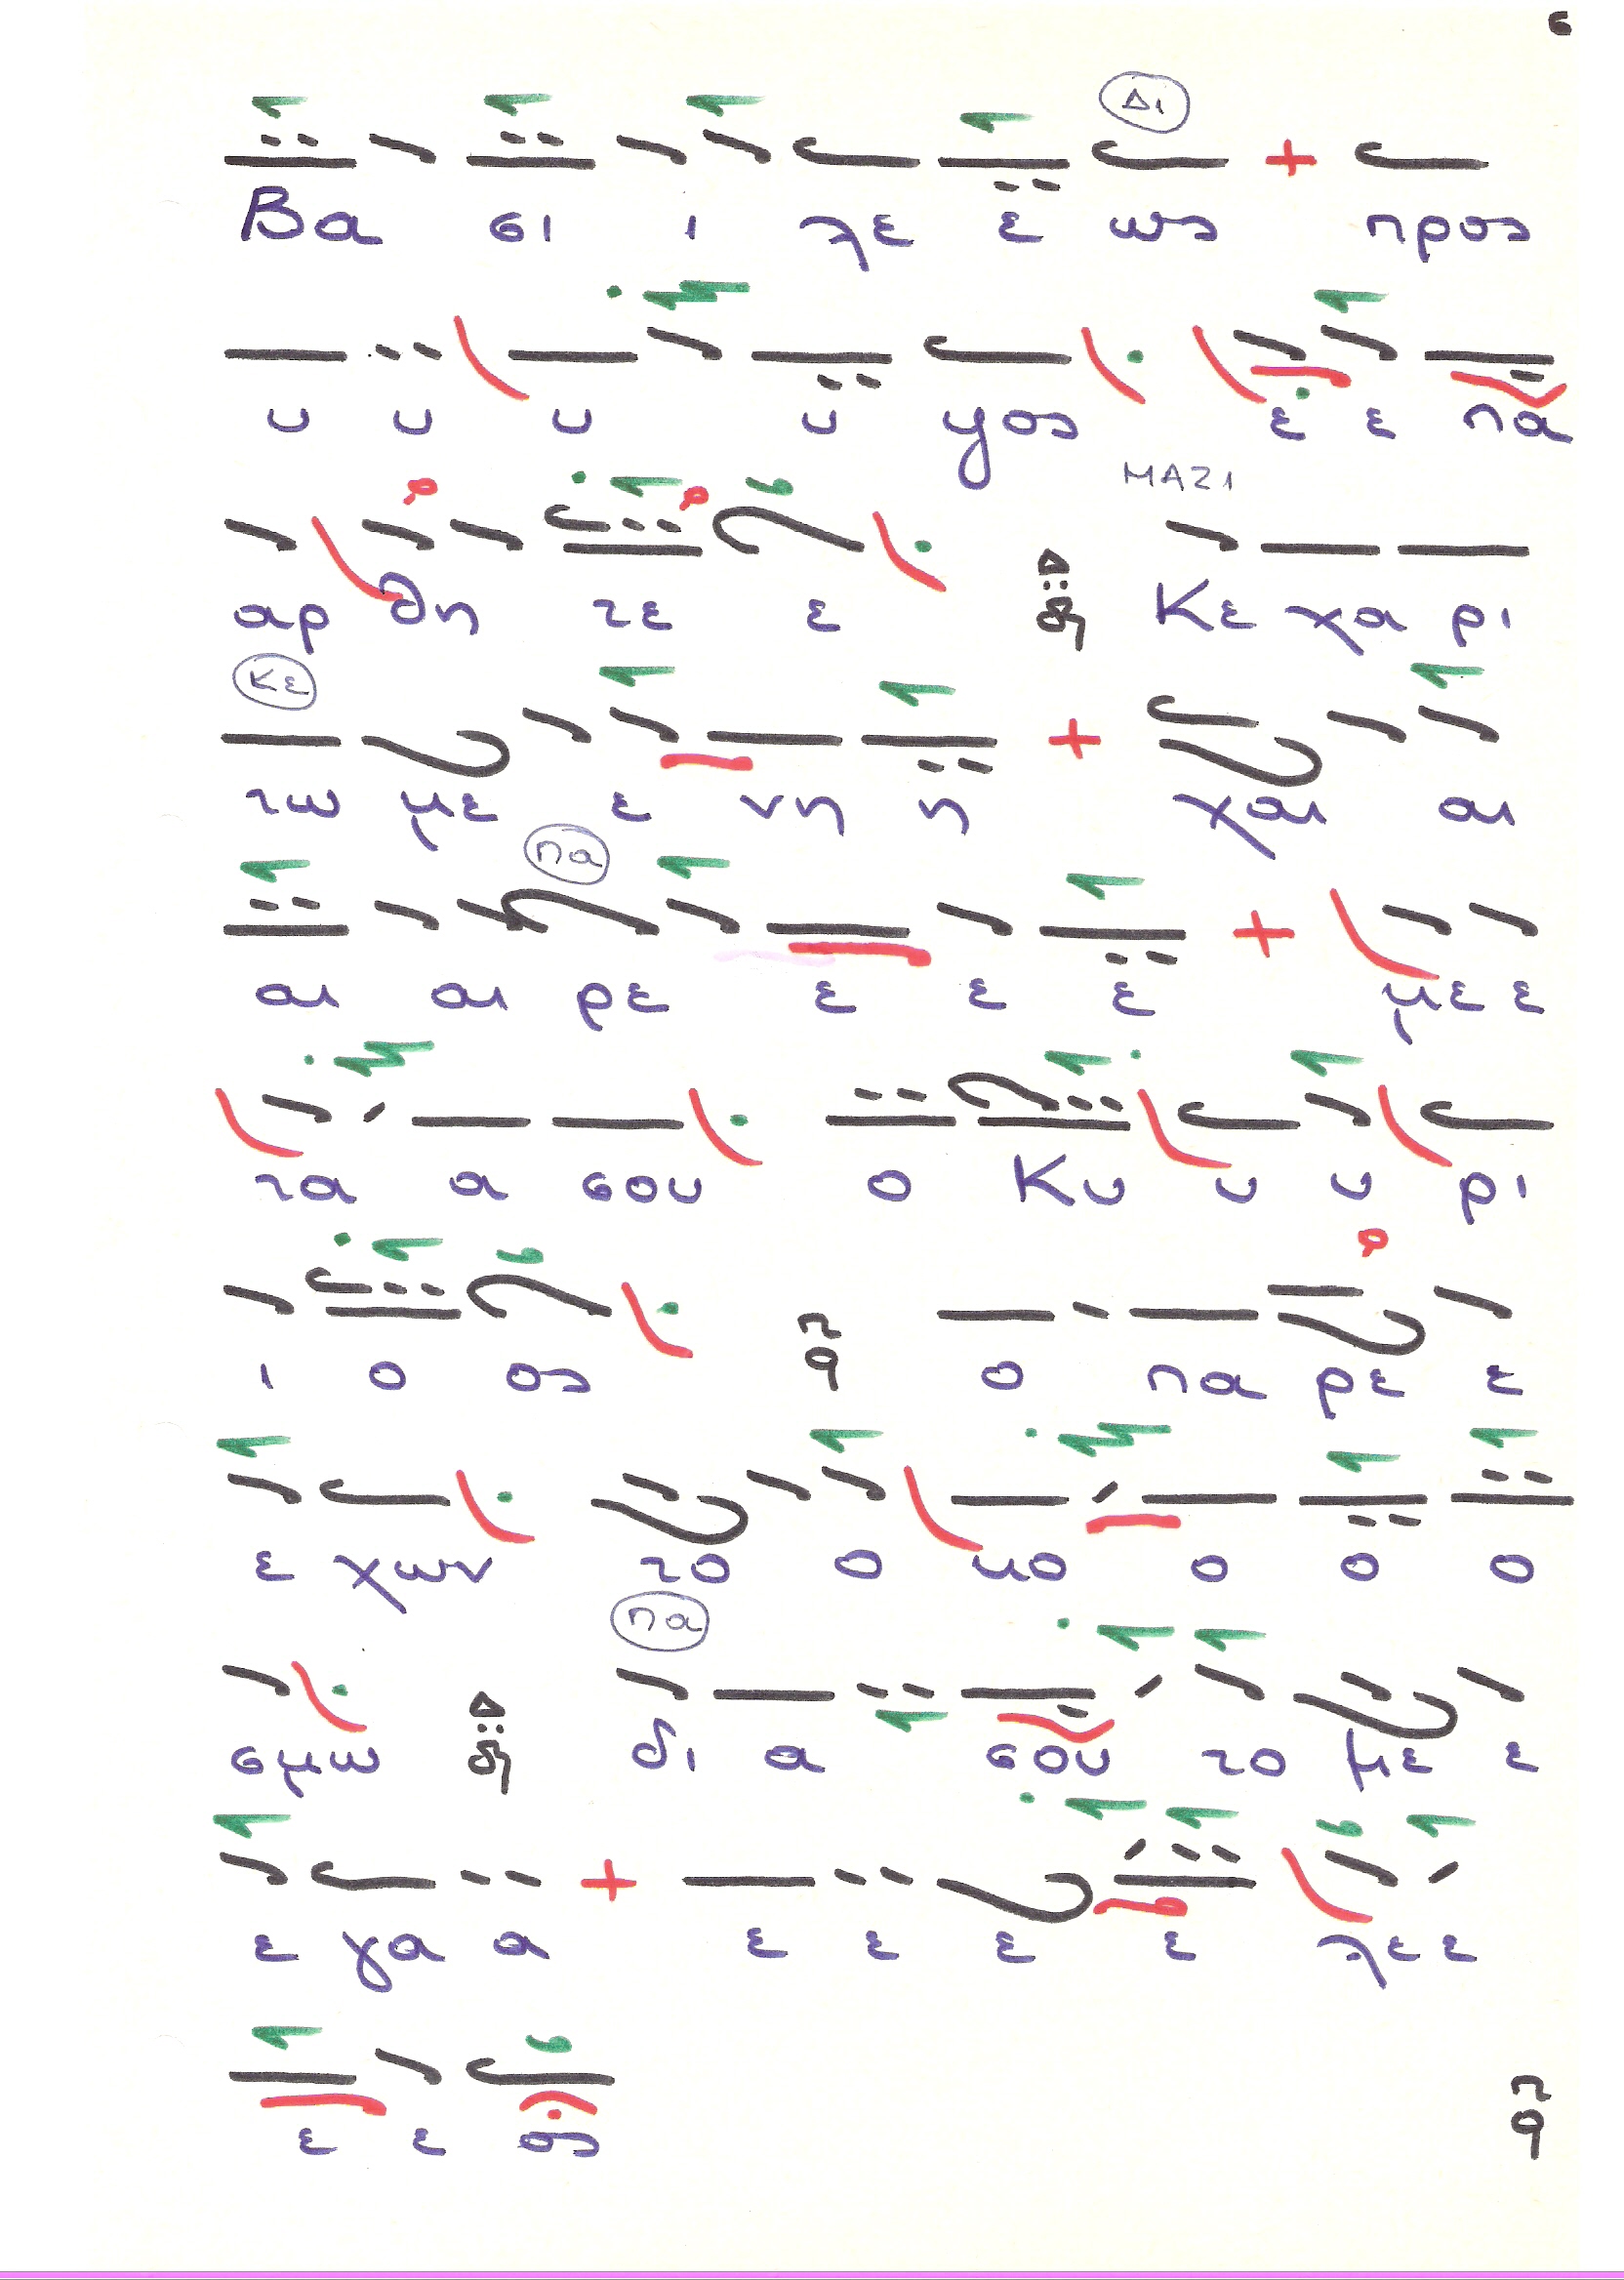 6
Δι
Βα σι ι λε ε ως προς
υ υ υ υ ψος ε ε πα
ΜΑΖΙ
αρ θη τε ε Δ Κε χα ρι
Κε
τω με ε νη η χαι αι
πα
αι αι ρε ε ε ε με ε
τα α σου ο Κυ υ υ ρι
ι ο ος π q ο πα ρε ε
ε χων το ο κο ο ο ο
πα
σμω Δ δι α σου το με ε
ε γα α ε ε ε ε λε ε
ε ε ος π q